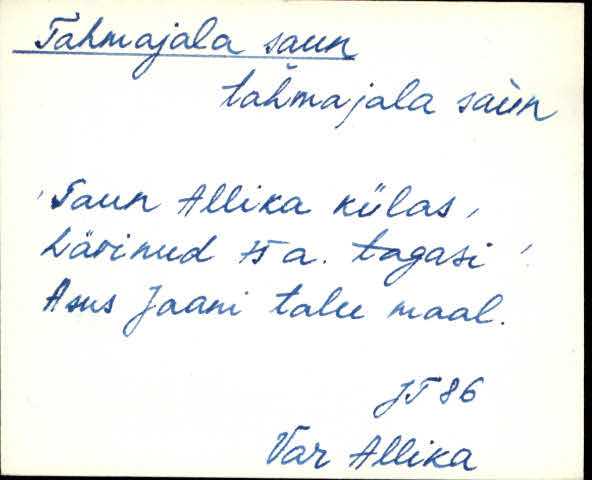 Tahmajala saun
tahmajala saùn
'Saun Allika külas,
hävinud 75 a. tagasi'.
Asus Jaani talu maal.
JT 86
Var Allika